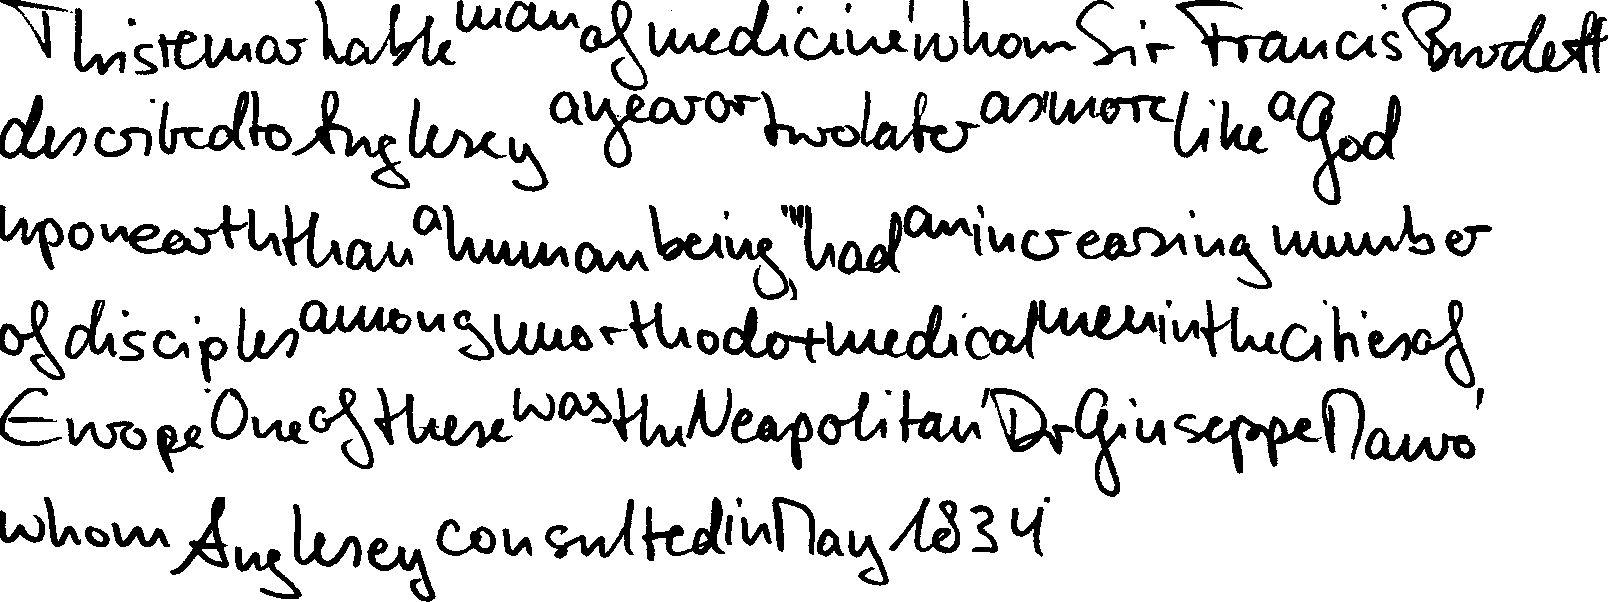 This remarkable man of medicine, whom Sir Francis Burdett
described to Anglesey a year or two later as "more like a God
upon earth than a human being," had an increasing number
of disciples among unorthodox medical men in the cities of
Europe. One of these was the Neapolitan, Dr Giuseppe Mauro,
whom Anglesey consulted in May 1834.